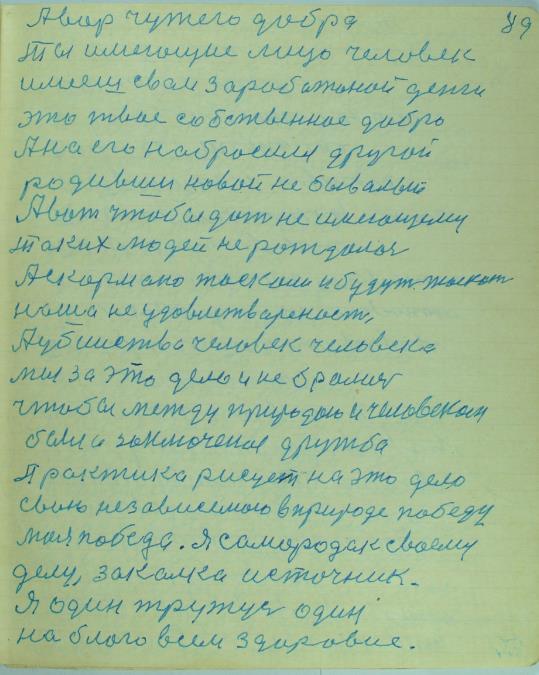 Авор чужего добра 49
Ты имеющие лицо человек
имеещ свои заработаной денги
это твое собственное добро
А на его набросился другой
родивши новой не бывалый
А вот чтобы дат не имеющему
таких людей не рождалос
А с кармано таскали и будут таскат
наша не удовлетвареност,
А убииства человек человека
мы за это дело и не бралис
чтобы между природаю и человеком
была заключеная дружба
Практика рисует на это дело
свою независемою в природе победу
моя победа. Я самородак своему
делу, закалка источник.
Я один тружус один
на благо всем здоровие.